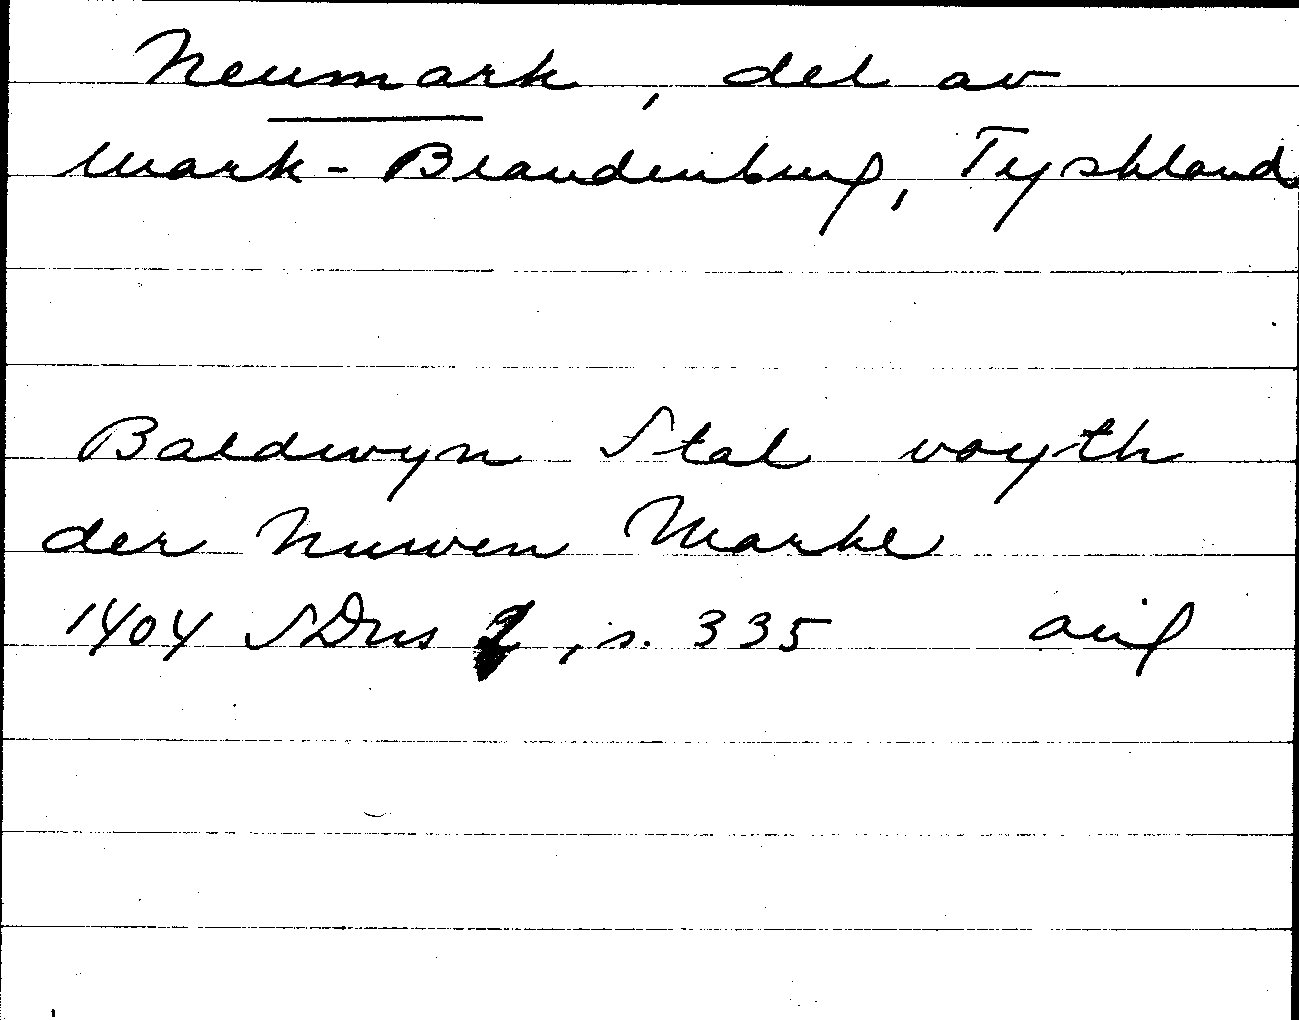 Neumark, del av
Mark-Brandenburg, Tyskland
Baldwyn Stal voyth
der Nuwen Marke
1404 SDns 1, s. 335 avig